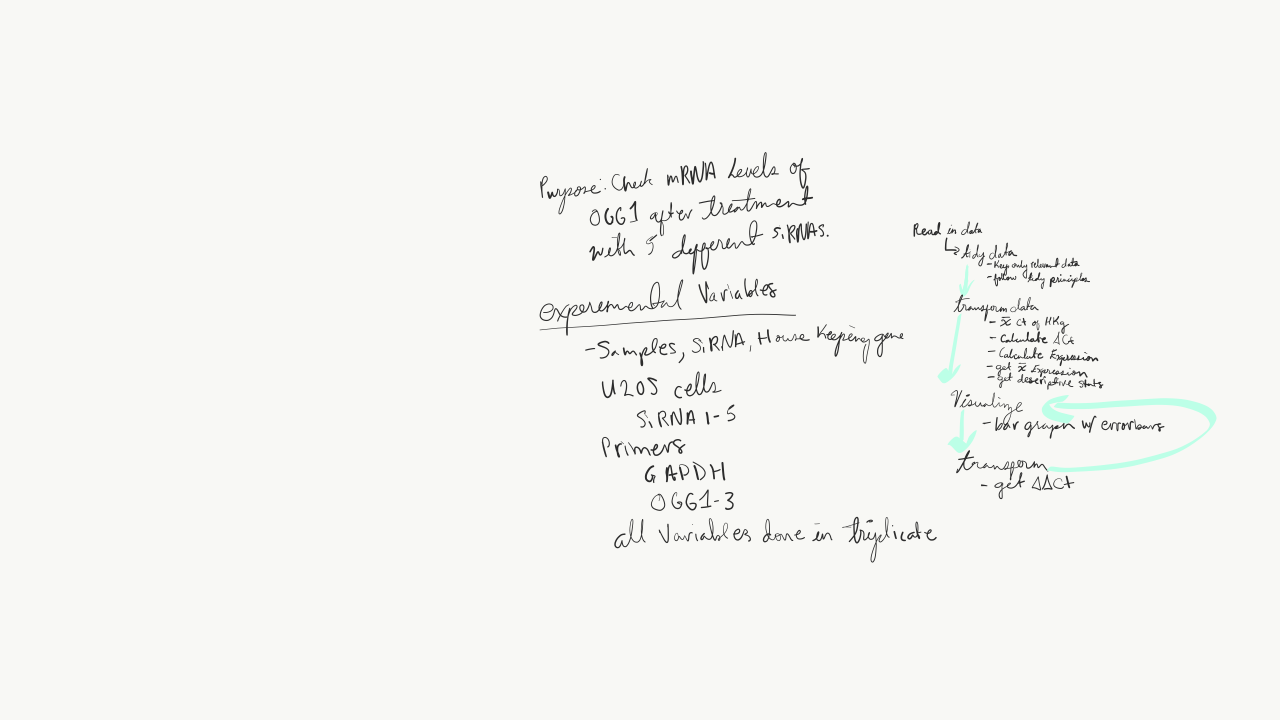 Purpose: Check mRNA Levels of
OGG1 after treatment
with 5 different siRNAs.
experemental Variables
- Samples, SiRNA, House Keeping gene
U2OS cells
SiRNA 1-5
Primers
GAPDH
OGG1-3
all Variables done in triplicate
Read in data
tidy data
- Keep only relevant data
- follow tidy principles
transform data
- x̄ ct of HKg
- Calculate ΔCt
- Calculate Expression
- get x̄ Expression
- get descriptive stats
Visualize
- bar graph w/ errorbars
transform
- get ΔΔCt